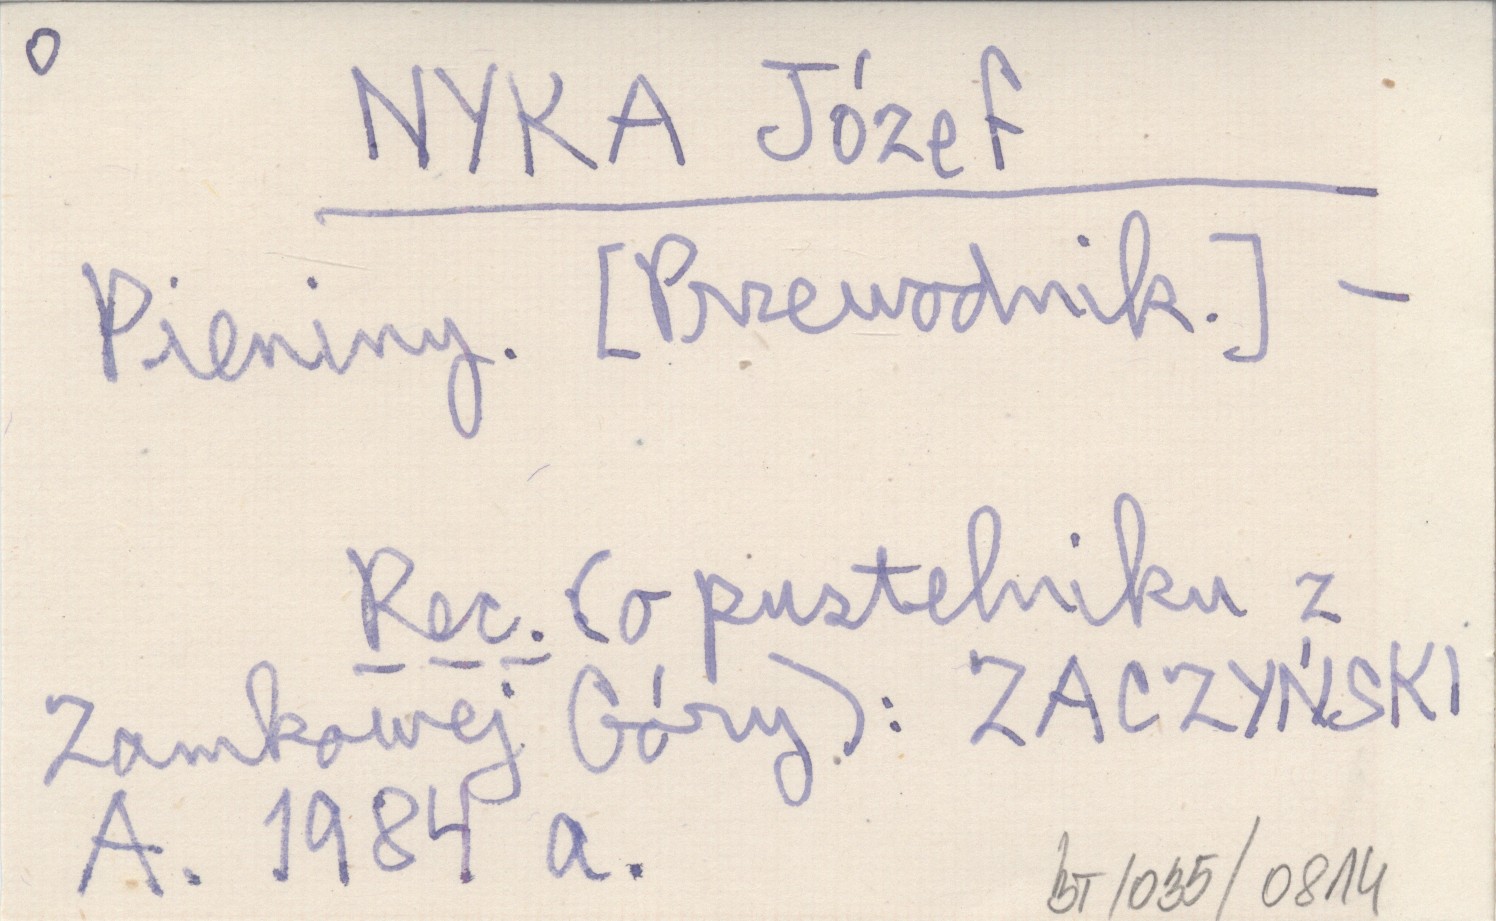 O
NYKA Józef
Pieniny. [Przewodnik.] –
Rec. (o pustelniku z
Zamkowej Góry): ZACZYŃSKI
A. 1984 a.
BT/035/0814